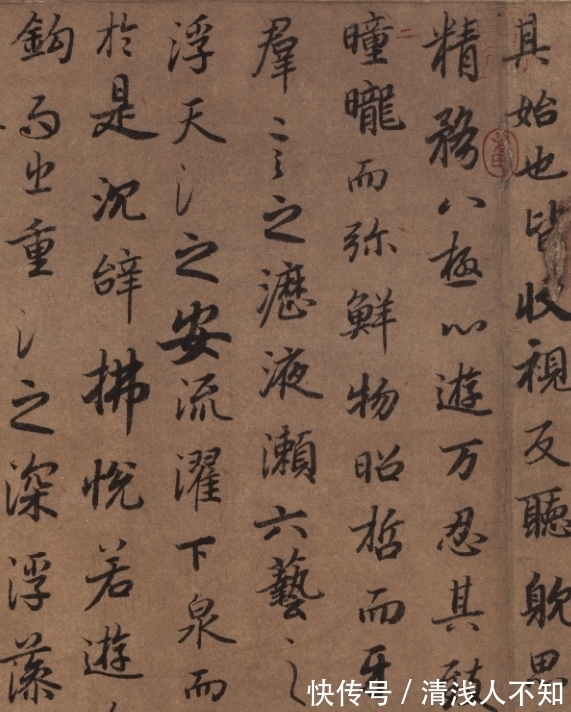 其始也皆收視反聽躭思
精務八極心遊万忍其致
曈曨而弥鮮物昭哲而互
羣言之瀝液瀬六藝之
浮天氵之安流濯下泉而
於是沉辝拂悅若遊
鈎而出重氵之深浮藻
快传号 / 清浅人不知